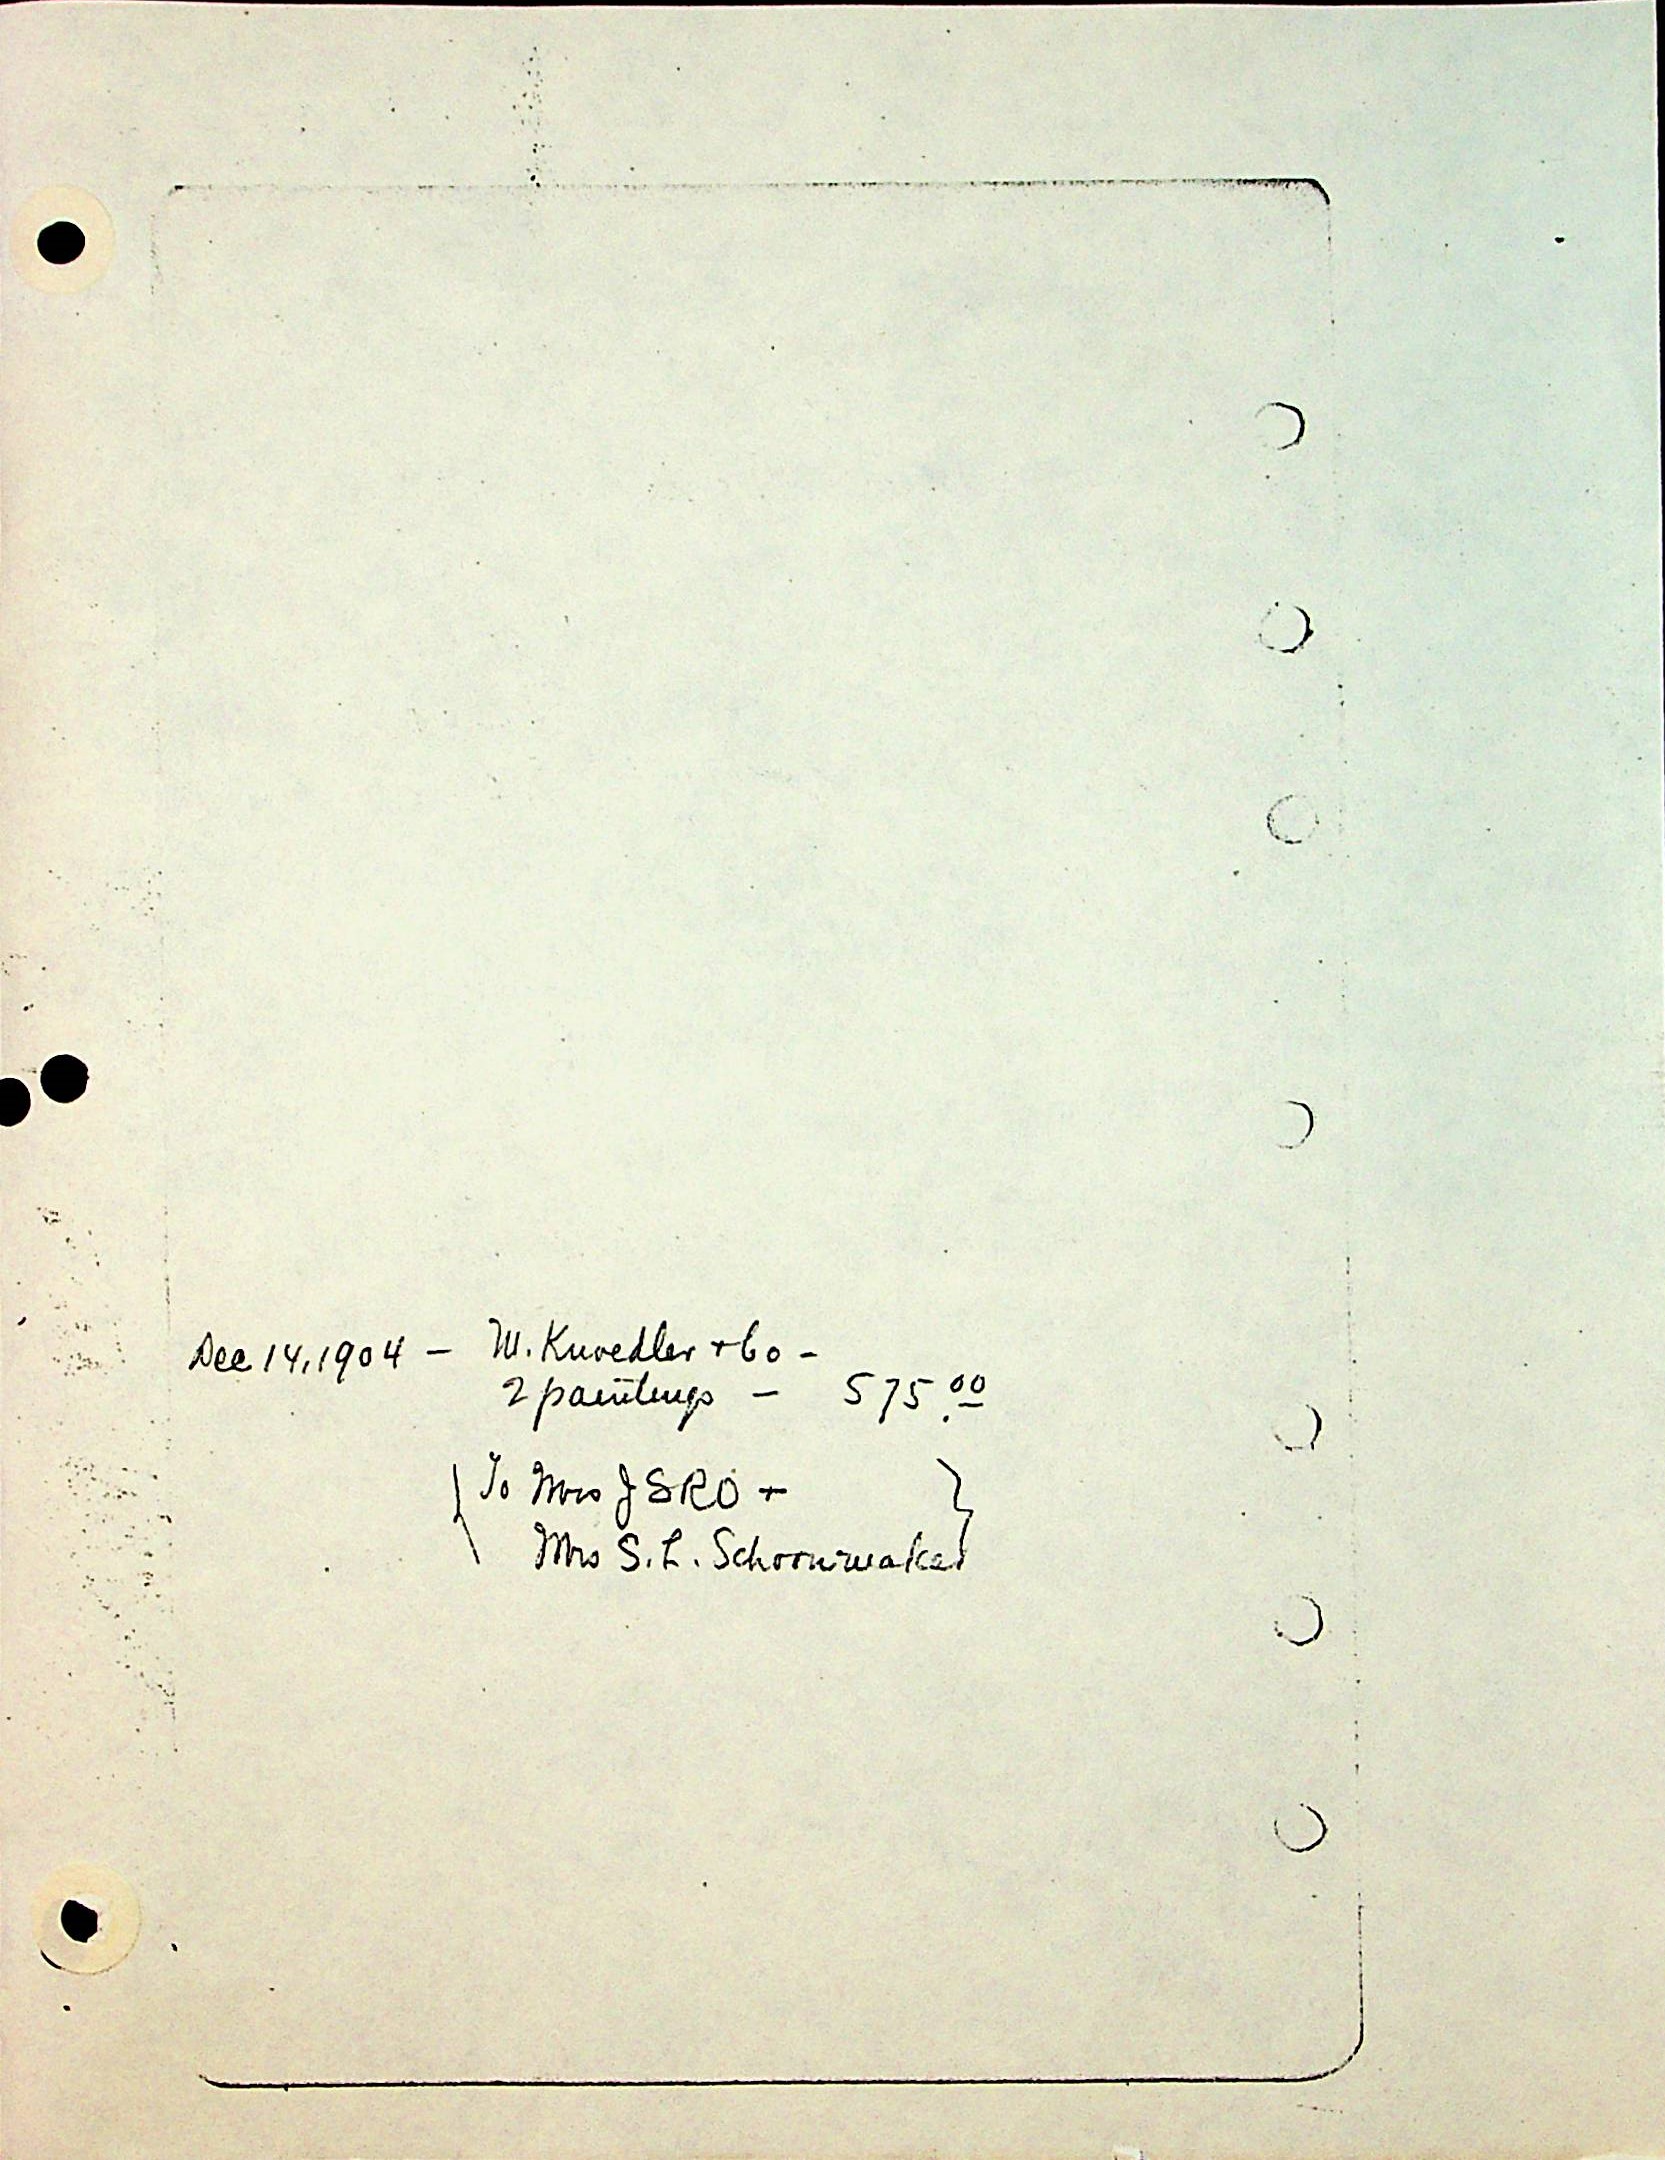 Dec 14, 1904 — M. Knoedler + Co –
2 paintings — 575.00
{ To Mrs J SRO + }
Mrs S. L. Schoonmaker